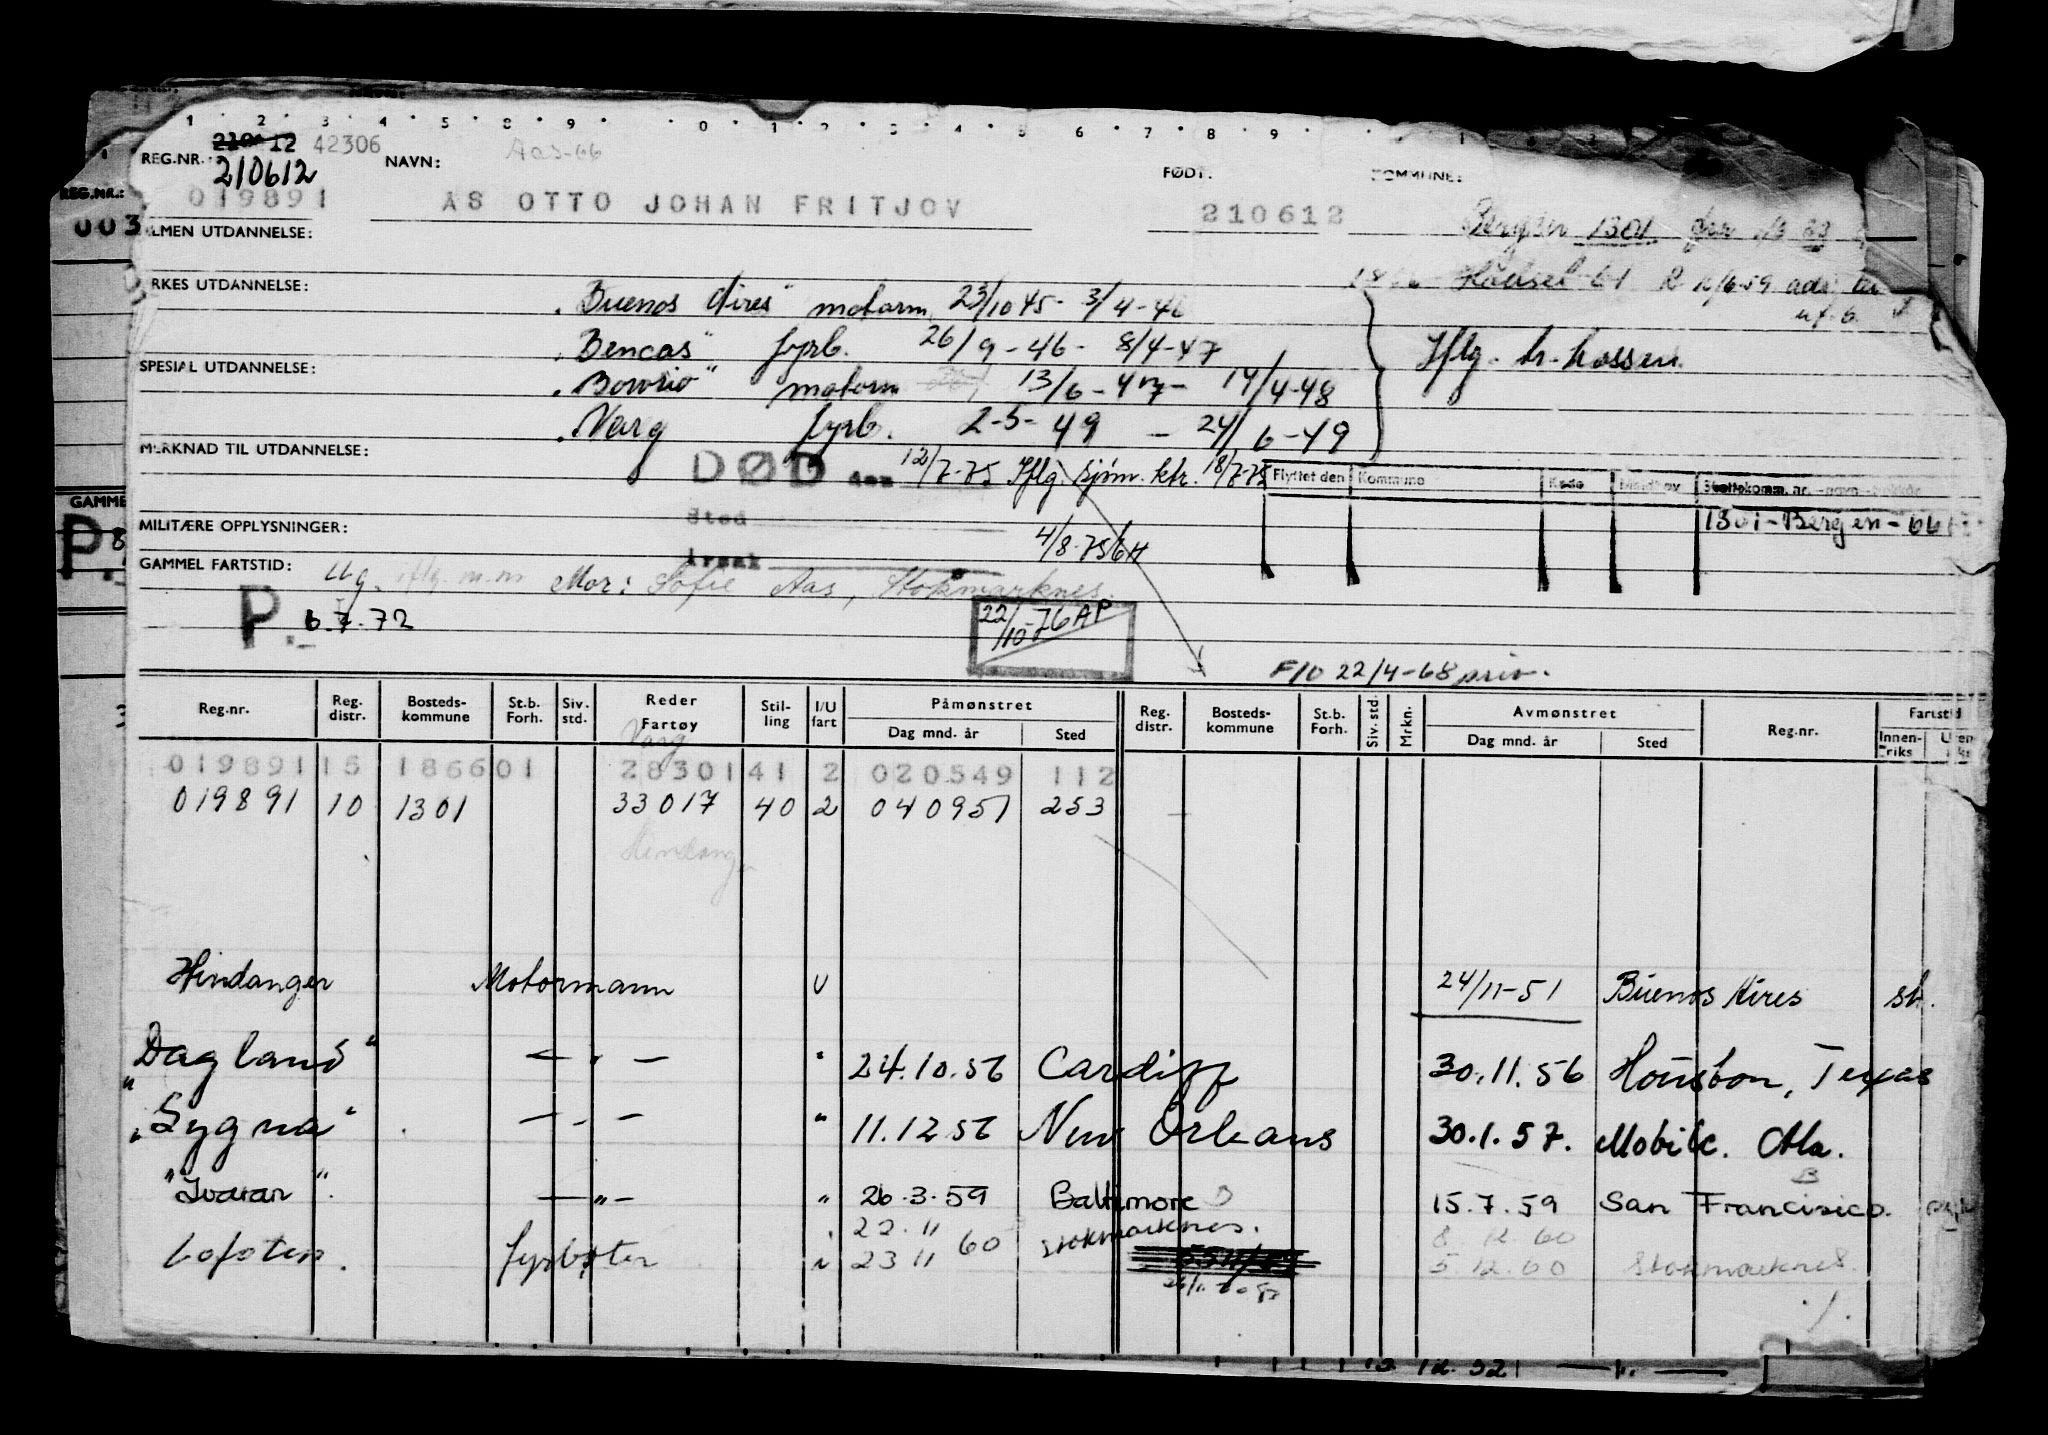 1 2 3 4 5 8 9 0 1 2 3 4 5 6 7 8 9
REG.NR. 42306 NAVN: Aas-66 FØDT: KOMMUNE:
210612
019891 AS OTTO JOHAN FRITJOV 210612 Bergen 1301
ALMEN UTDANNELSE:
YRKES UTDANNELSE: "Buenos Aires" motorm 23/10 45 - 3/4-46
"Bencas" fyrb. 26/9-46 - 8/4-47 Iflg.
SPESIAL UTDANNELSE: motorm 13/6-47 - 14/4-48
"Varg fyrb. 2-5-49 - 24/6-49
MERKNAD TIL UTDANNELSE: DØD den 12/7-75 Iflg. sjøm. ktr. 18/7-75 Flyttet den Kommune Kode
Sted 1301-Bergen-661
MILITÆRE OPPLYSNINGER: 4/8-75
Årsak
GAMMEL FARTSTID: Ug. Mor: Sofie Aas, Stokmarknes.
P. 6.7.72 22/10-76 AP
F/O 22/4-68 priv.
Reg.nr. Reg. distr. Bosteds-kommune St.b. Forh. Siv. std. Reder Fartøy Stil-ling I/U fart Påmønstret Dag mnd. år Sted Reg. distr. Bosteds-kommune St.b. Forh. Siv. std. Mrkn. Avmønstret Dag mnd. år Sted Reg.nr. Fartstid Innen-riks
Varg
019891 15 186601 28301 41 2 020549 112
019891 10 1301 33017 40 2 040951 253
Hindanger
Hindanger Motormann U 24/11-51 Buenos Aires
"Dagland" — " — " 24.10.56 Cardiff 30.11.56 Houston, Texas
"Sygna" — " — " 11.12 56 New Orleans 30.1.57. Mobile. Ala.
"Ivaran" — " — " 26.3.59 Baltimore 15.7.59 San Francisico.
Lofoten. fyrbøter 22.11 60 Stokmarknes. 8.12.60
23 11 5.12.60 Stokmarknes.
REG.NR.:
003
GAMMEL
P.
12.52